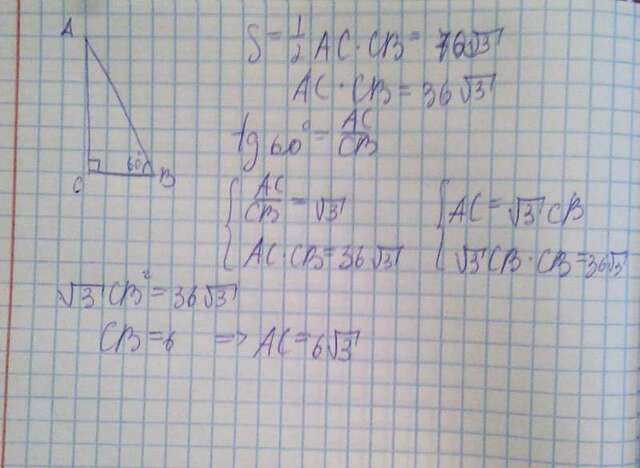 A
C
60°
B
S = 1/2 AC · CB = √3
AC · CB = 36√3
tg 60° = AC/CB
{ AC/CB = √3
AC · CB = 36√3
{ AC = √3 CB
√3 CB · CB = 36√3
√3 CB² = 36√3
CB = 6 => AC = 6√3